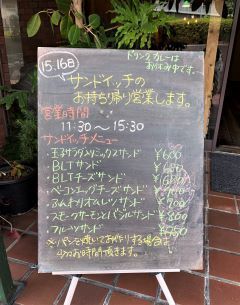 ドリンク、カレーは
お休み中です。
15.16日
サンドイッチの
お持ち帰り営業します。
営業時間
11:30〜15:30
サンドイッチメニュー
・玉子サラダミックスサンド ¥600
・BLTサンド
・BLTチーズサンド
・ベーコンエッグチーズサンド
・ハムチーズオムレツサンド
・スモークサーモンとバジルサンド ¥800
・フルーツサンド ¥550
※パンを焼いてお作りする場合は
お時間頂きます。